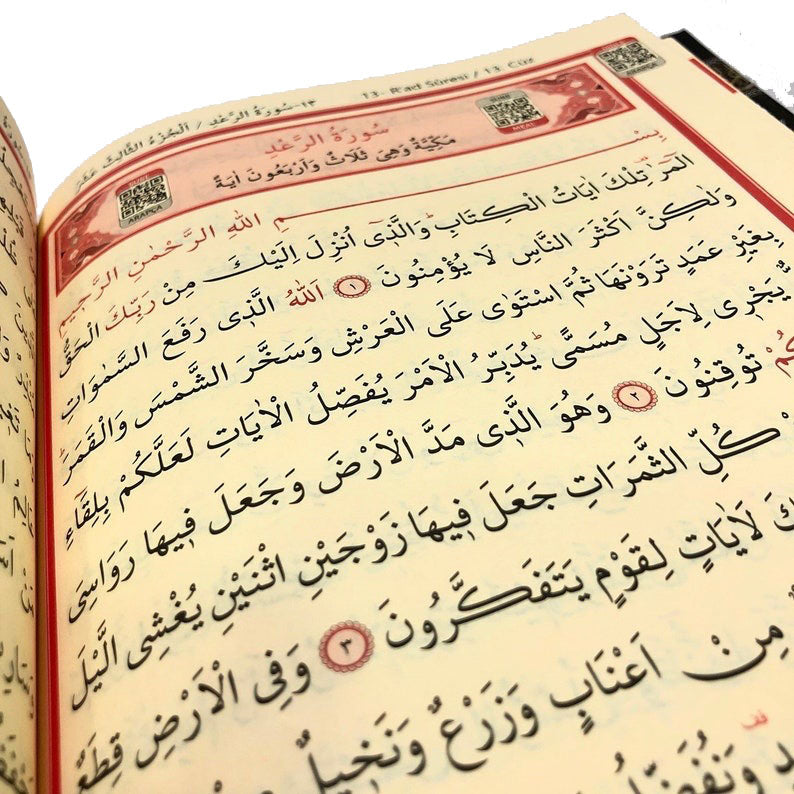 13- R'ad Sûresi / 13. Cüz
١٣-سُورَةُ الرَّعْدِ / اَلْجُزْءُ الثَّالِثُ عَشَرَ
MEAL
سُورَةُ الرَّعْدِ
مَكِّيَّةٌ وَهِيَ ثَلَاثٌ وَاَرْبَعُونَ اٰيَةً
ARAPÇA
بِسْمِ اللّٰهِ الرَّحْمٰنِ الرَّحِيمِ
الٓمٓرٰ تِلْكَ اٰيَاتُ الْكِتَابِۜ وَالَّذ۪ٓي اُنْزِلَ اِلَيْكَ مِنْ رَبِّكَ الْحَقُّ
وَلٰكِنَّ اَكْثَرَ النَّاسِ لَا يُؤْمِنُونَ ١ اَللّٰهُ الَّذ۪ي رَفَعَ السَّمٰوَاتِ
بِغَيْرِ عَمَدٍ تَرَوْنَهَا ثُمَّ اسْتَوٰى عَلَى الْعَرْشِ وَسَخَّرَ الشَّمْسَ وَالْقَمَرَۜ
يَجْر۪ي لِاَجَلٍ مُسَمًّىۜ يُدَبِّرُ الْاَمْرَ يُفَصِّلُ الْاٰيَاتِ لَعَلَّكُمْ بِلِقَٓاءِ
تُوقِنُونَ ٢ وَهُوَ الَّذ۪ي مَدَّ الْاَرْضَ وَجَعَلَ ف۪يهَا رَوَاسِيَ
كُلِّ الثَّمَرَاتِ جَعَلَ ف۪يهَا زَوْجَيْنِ اثْنَيْنِ يُغْشِي الَّيْلَ
لَاٰيَاتٍ لِقَوْمٍ يَتَفَكَّرُونَ ٣ وَفِي الْاَرْضِ قِطَعٌ
مِنْ اَعْنَابٍ وَزَرْعٌ وَنَخ۪يلٌ
وَنُفَضِّلُ